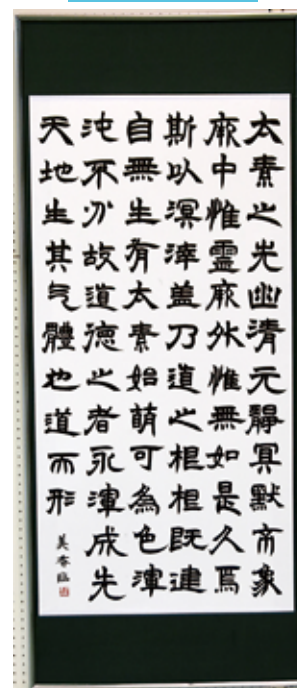 太素之先幽清元靜冥默象
厥中惟靈厥外惟無如是久焉
斯以溟涬蓋乃道之根根既建
自無生有太素始萌可為色渾
沌不分故道德之者永渾成先
天地生其气體也道而形
美臨